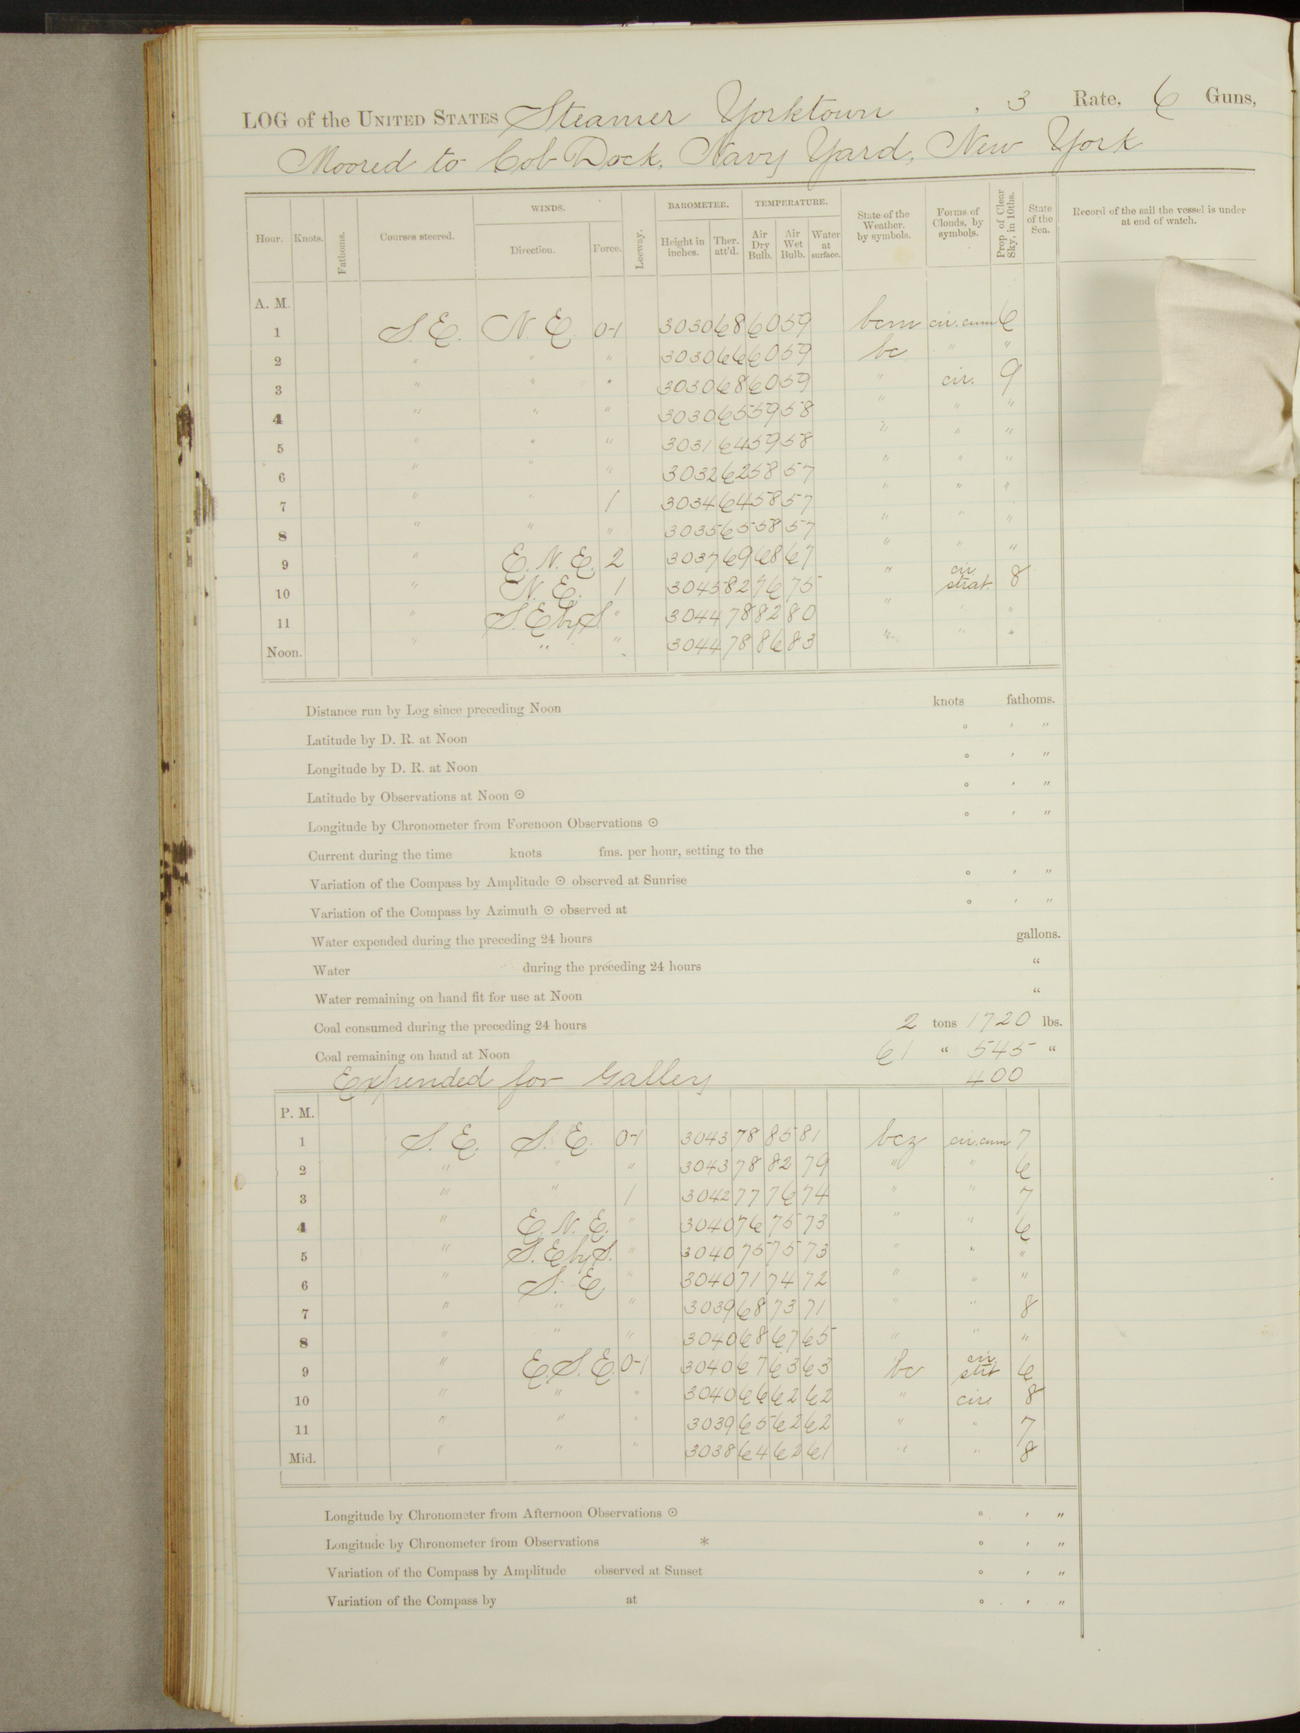 LOG of the UNITED STATES Steamer Yorktown, 3 Rate, 6 Guns,
Moored to Cob Dock, Navy Yard, New York
Hour. Knots. Fathoms. Courses steered. WINDS. Direction. Force. Leeway. BAROMETER. Height in inches. Ther. att'd. TEMPERATURE. Air Dry Bulb. Air Wet Bulb. Water at surface. State of the Weather, by symbols. Forms of Clouds, by symbols. Prop. of Clear Sky, in 10ths. State of the Sea. Record of the sail the vessel is under at end of watch.
A. M.
1 S.E. N.E. 0-1 3030 68 60 59 bcm cir. cum 6
2 " " " 3030 66 60 59 bc " "
3 " " " 3030 68 60 59 " cir. 9
4 " " " 3030 65 59 58 " " "
5 " " " 3031 64 59 58 " " "
6 " " " 3032 62 58 57 " " "
7 " " 1 3034 64 58 57 " " "
8 " " " 3035 65 58 57 " " "
9 " E.N.E. 2 3037 69 68 67 " " "
10 " N.E. 1 3045 82 76 75 " cir strat. 8
11 " S.E by S. " 3044 78 82 80 " " "
Noon. " " " 3044 78 86 83 " " "
Distance run by Log since preceding Noon knots fathoms.
Latitude by D. R. at Noon ° ' "
Longitude by D. R. at Noon ° ' "
Latitude by Observations at Noon ☉ ° ' "
Longitude by Chronometer from Forenoon Observations ☉ ° ' "
Current during the time knots fms. per hour, setting to the
Variation of the Compass by Amplitude ☉ observed at Sunrise ° ' "
Variation of the Compass by Azimuth ☉ observed at ° ' "
Water expended during the preceding 24 hours gallons.
Water during the preceding 24 hours "
Water remaining on hand fit for use at Noon "
Coal consumed during the preceding 24 hours 2 tons 1720 lbs.
Coal remaining on hand at Noon 61 " 545 "
Expended for Galley 400
P. M.
1 S.E. S.E. 0-1 3043 78 85 81 bcz cir.cum 7
2 " " " 3043 78 82 79 " " 6
3 " " 1 3042 77 76 74 " " 7
4 " E.N.E. " 3040 76 75 73 " " 6
5 " S.E by S. " 3040 75 75 73 " " "
6 " S.E " 3040 71 74 72 " " "
7 " " " 3039 68 73 71 " " 8
8 " " " 3040 68 67 65 " " "
9 " E.S.E. 0-1 3040 67 63 63 bc cir strt 6
10 " " " 3040 66 62 62 " cir 8
11 " " " 3039 65 62 62 " " 7
Mid. " " " 3038 64 62 61 " " 8
Longitude by Chronometer from Afternoon Observations ☉ ° ' "
Longitude by Chronometer from Observations * ° ' "
Variation of the Compass by Amplitude observed at Sunset ° ' "
Variation of the Compass by at ° ' "